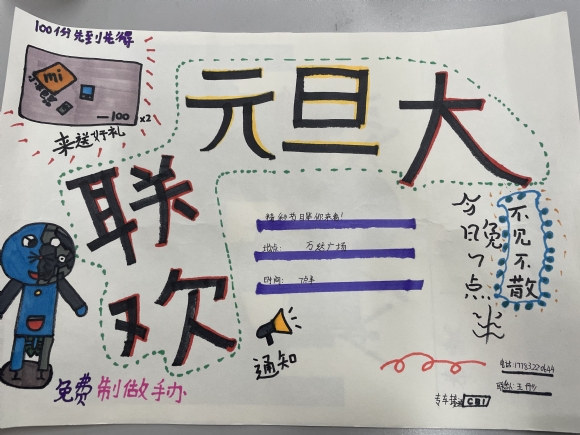 100份先到先得
mi
100 x2
来送好礼
元旦大
联
欢
精彩节目等你来看!
地点: 万达广场
时间: 7点半
今晚
日7点半
不见不散
通知
免费制做手办
电话:
专车接